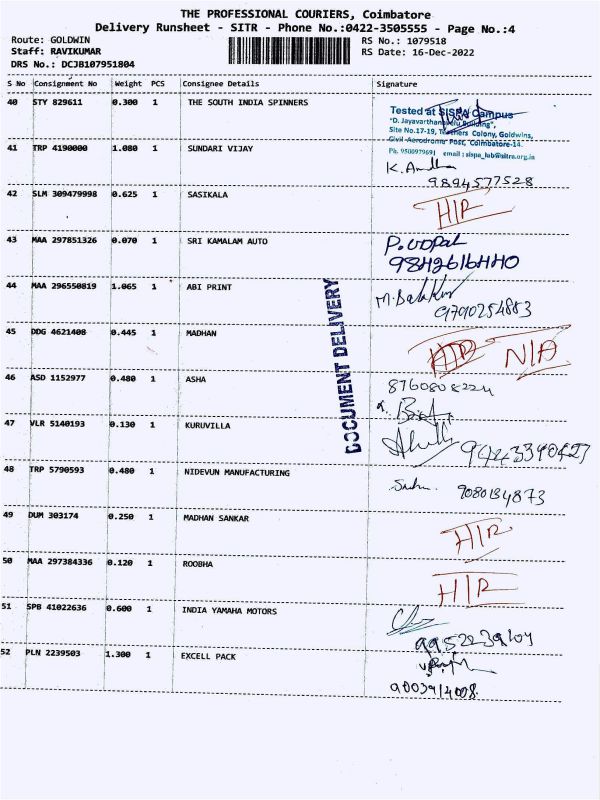 THE PROFESSIONAL COURIERS, Coimbatore
Delivery Runsheet - SITR - Phone No.:0422-3505555 - Page No.:4
Route: GOLDWIN RS No.: 1079518
Staff: RAVIKUMAR RS Date: 16-Dec-2022
DRS No.: DCJB107951804
S No Consignment No Weight PCS Consignee Details Signature
40 STY 829611 0.300 1 THE SOUTH INDIA SPINNERS
Tested at SISPA Campus
"D. Jayavarthanavelu Building",
Site No.17-19, Teachers Colony, Goldwins,
Civil Aerodrome Post, Coimbatore-14.
Ph. 9500979691 email : sispa_lab@sitra.org.in
41 TRP 4190000 1.080 1 SUNDARI VIJAY
9894577528
42 SLM 309479998 0.625 1 SASIKALA H/R
43 MAA 297851326 0.070 1 SRI KAMALAM AUTO P. Gopal
9842616440
44 MAA 296550819 1.065 1 ABI PRINT
9790254883
DOCUMENT DELIVERY
45 DDG 4621408 0.445 1 MADHAN N/A
46 ASD 1152977 0.480 1 ASHA 8760808224
47 VLR 5140193 0.130 1 KURUVILLA
48 TRP 5790593 0.480 1 NIDEVUN MANUFACTURING 9080134873
49 DUM 303174 0.250 1 MADHAN SANKAR H/R
50 MAA 297384336 0.120 1 ROOBHA H/R
51 SPB 41022636 0.600 1 INDIA YAMAHA MOTORS
9952239104
52 PLN 2239503 1.300 1 EXCELL PACK
9003914008